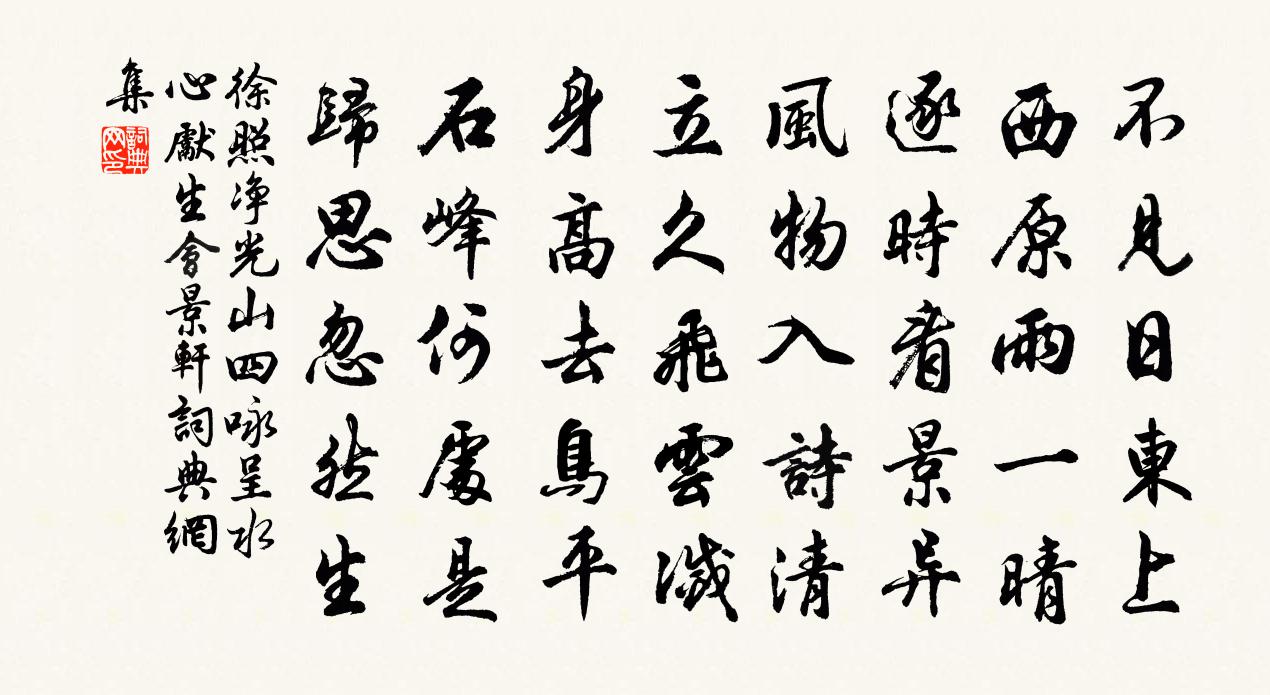 不見日東上
西原雨一晴
逐時看景异
風物入詩清
立久飛雲滅
身高去鳥平
石峰何處是
歸思忽然生
徐照净光山四咏呈水
心獻生會景軒詞典網
集
詞典網印